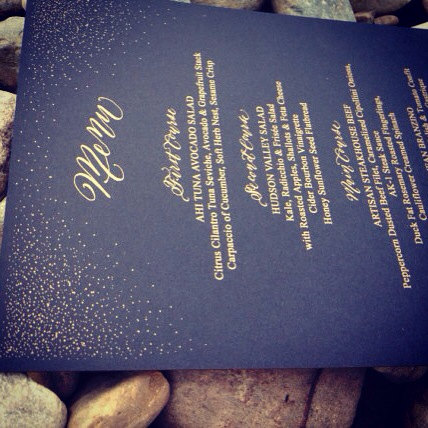 Menu
First Course
AHI TUNA AVOCADO SALAD
Citrus Cilantro Tuna Sheviche, Avocado & Grapefruit Stack
Carpaccio of Cucumber, Soft Herb Nest, Sesame Crisp
Second Course
HUDSON VALLEY SALAD
Kale, Radicchio & Frisée Salad
with Roasted Apples, Shallots & Feta Cheese
Cider Bourbon Vinaigrette
Honey Sunflower Seed Flatbread
Main Course
ARTISAN STEAKHOUSE BEEF
Seared Beef Filet, Caramelized Cipollini Onions,
Peppercorn Dusted Beef, Steak and Fingerlings,
AK-1 Steak
Duck Fat Rosemary Roasted Splash
BRANZINO
Cauliflower Tomato Confit